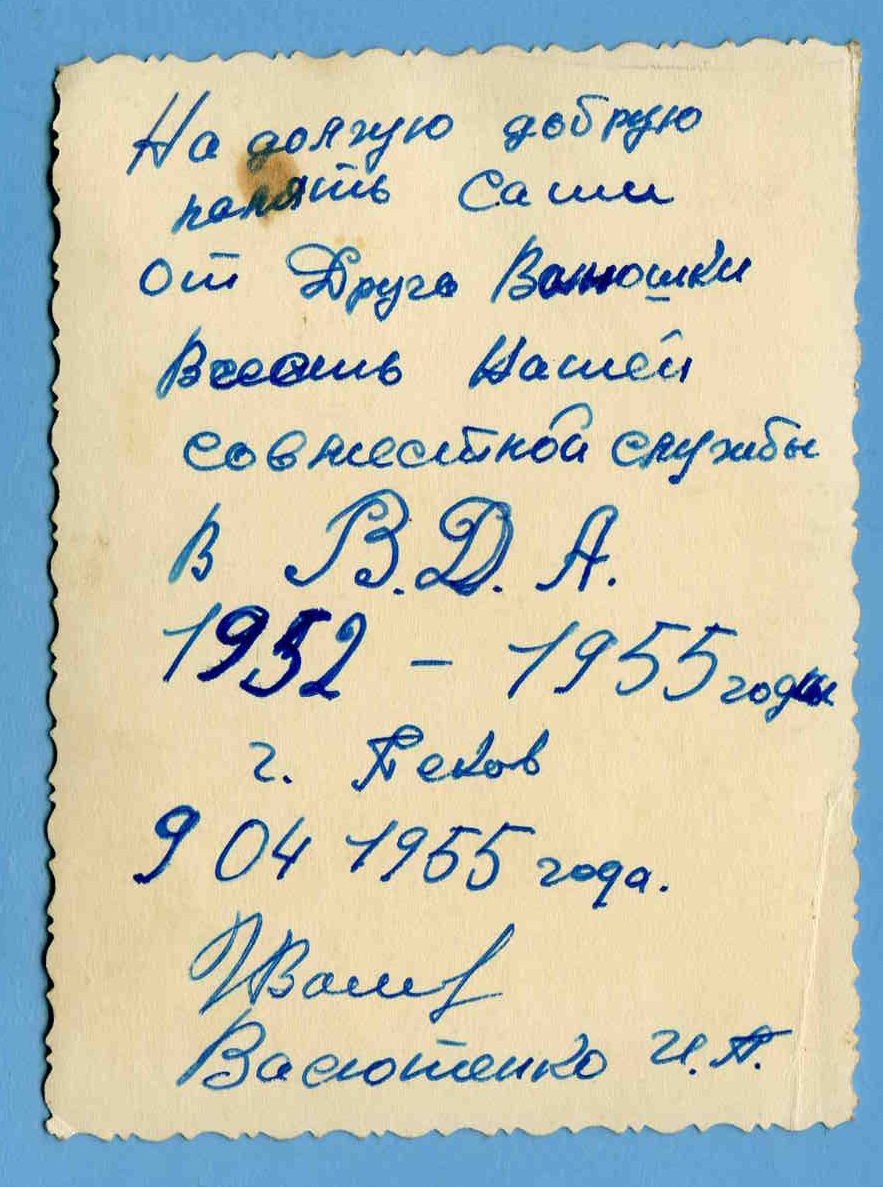 На долгую добрую
память Саши
от Друга Ванюшки
Вчесть Нашей
совместной службы
в В.Д.А.
1952 - 1955 годы
г. Псков
9 04 1955 года.
Васютенко И.П.